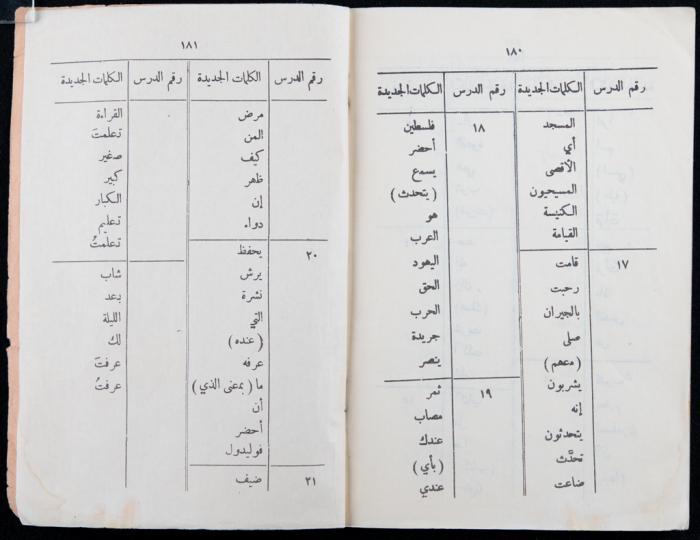 ١٨٠
رقم الدرس الكلمات الجديدة رقم الدرس الكلمات الجديدة
المسجد
أي
الأقصى
المسيحيون
الكنيسة
القيامة
١٧ قامت
رحبت
بالجيران
صلى
(معهم)
يشربون
إنه
يتحدثون
تحدَّث
ضاعت
١٨ فلسطين
أحضر
يسمع
(يتحدث)
هو
العرب
اليهود
الحق
الحرب
جريدة
ينصر
١٩ ثمر
مصاب
عندك
(بأي)
عندي
١٨١
رقم الدرس الكلمات الجديدة رقم الدرس الكلمات الجديدة
مرض
المن
كيف
ظهر
إن
دواء
٢٠ يحفظ
يرش
نشرة
التي
(عنده)
عرفه
ما (بمعنى الذي)
أن
أحضر
فوليدول
٢١ ضيف
القراءة
تعلمتَ
صغير
كبير
الكبار
تعليم
تعلمتُ
شاب
بعد
الليلة
لك
عرفتَ
عرفتُ